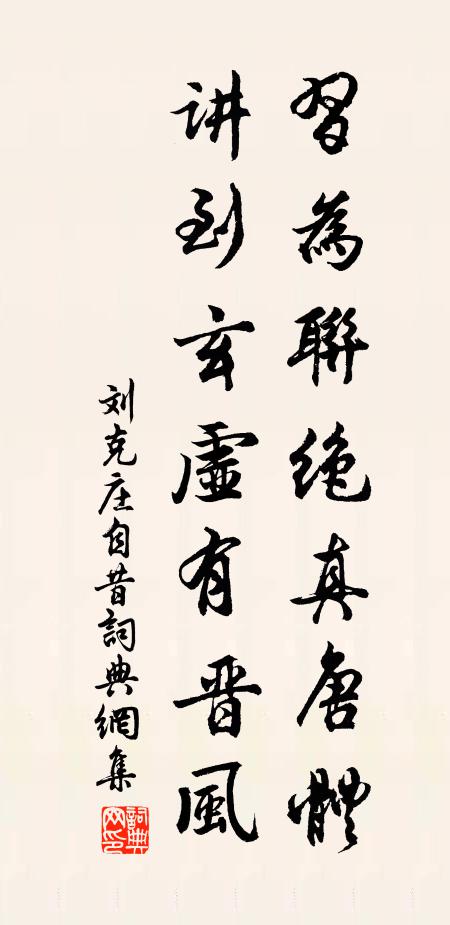 習為聯絶真唐體
讲到玄虛有晋風
刘克庄自昔詞典網集
詞典網印